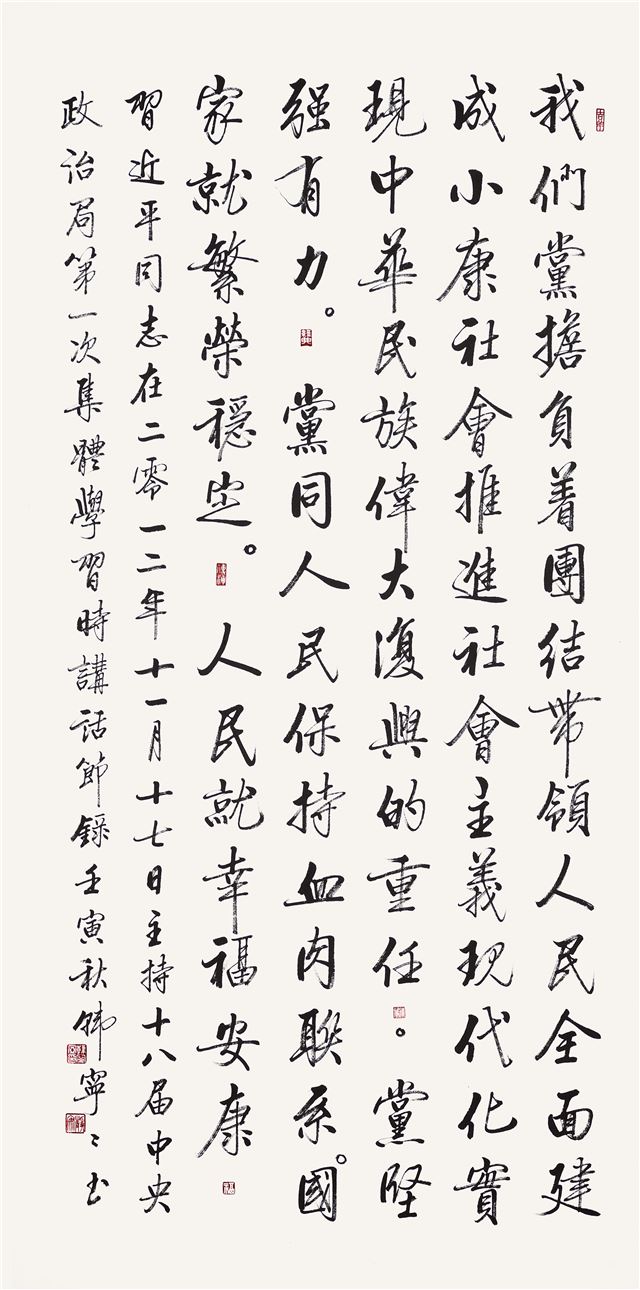 我們黨擔負着團结帶領人民全面建
成小康社會推進社會主義現代化實
現中華民族偉大復興的重任。黨堅
强有力。黨同人民保持血肉联系。國
家就繁榮穩定。人民就幸福安康
習近平同志在二零一二年十一月十七日主持十八届中央
政治局第一次集體學習時講話節録壬寅秋韩寧寧书